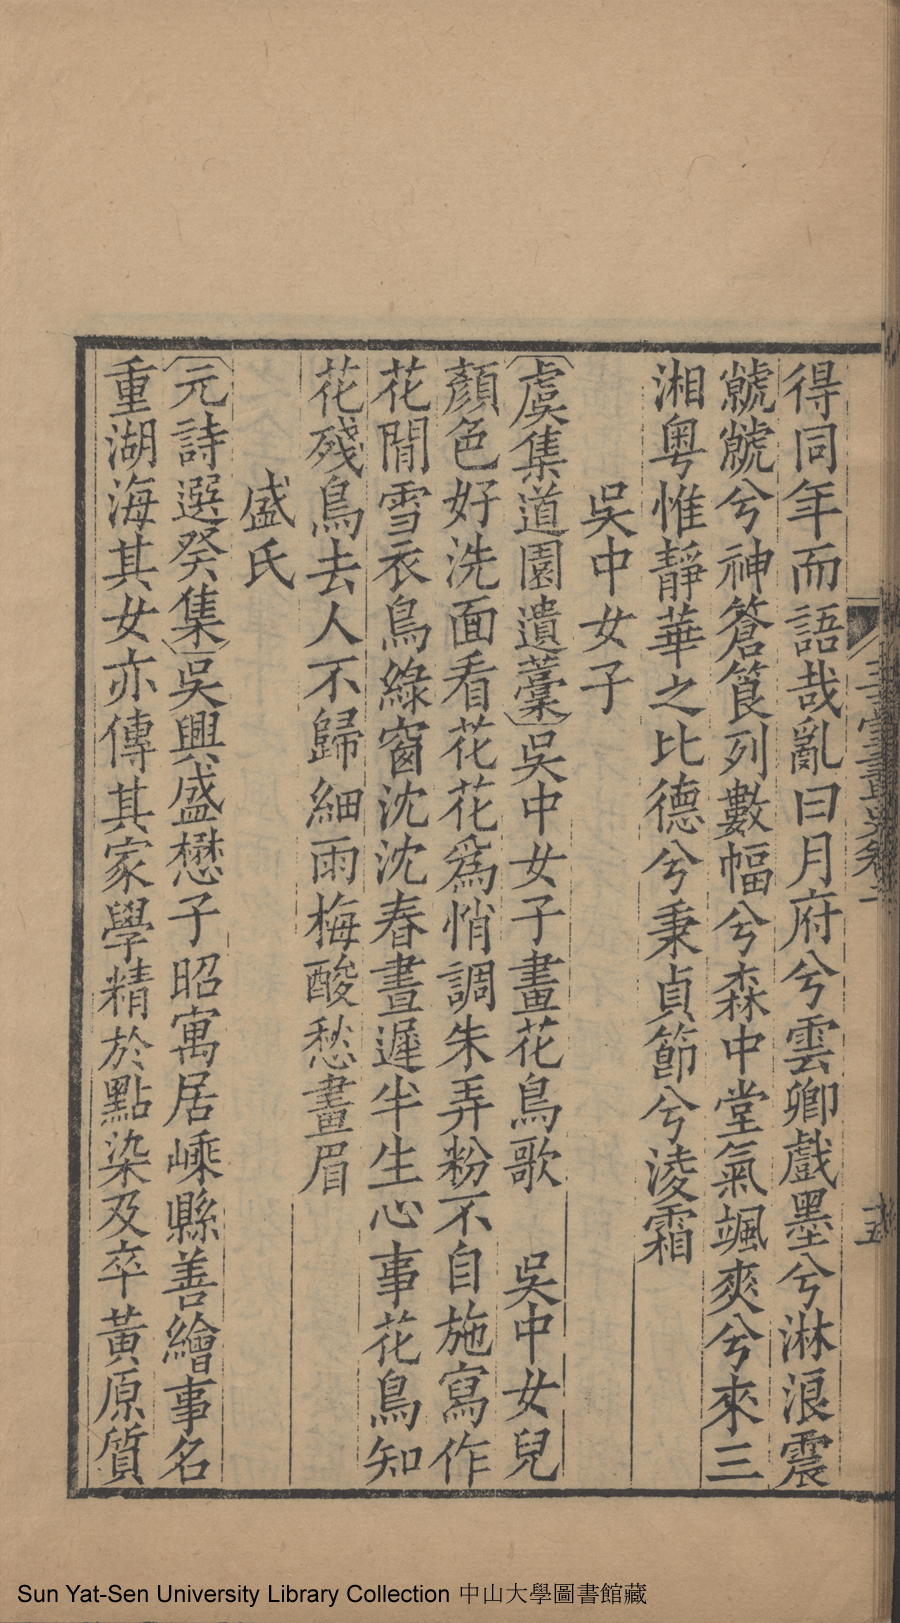 玉臺畫史卷
得同年而語哉亂曰月府兮雲卿戲墨兮淋浪震
虩虩兮神篬筤列數幅兮森中堂氣颯爽兮來三
湘粵惟靜華之比德兮秉貞節兮淩霜
吳中女子
〔虞集道園遺藁〕吳中女子畫花鳥歌 吳中女兒
顏色好洗面看花花爲悄調朱弄粉不自施寫作
花閒雪衣鳥綠窗沈沈春晝遲半生心事花鳥知
花殘鳥去人不歸細雨梅酸愁畫眉
盛氏
〔元詩選癸集〕吳興盛懋子昭寓居嵊縣善繪事名
重湖海其女亦傳其家學精於點染及卒黃原質
Sun Yat-Sen University Library Collection 中山大學圖書館藏